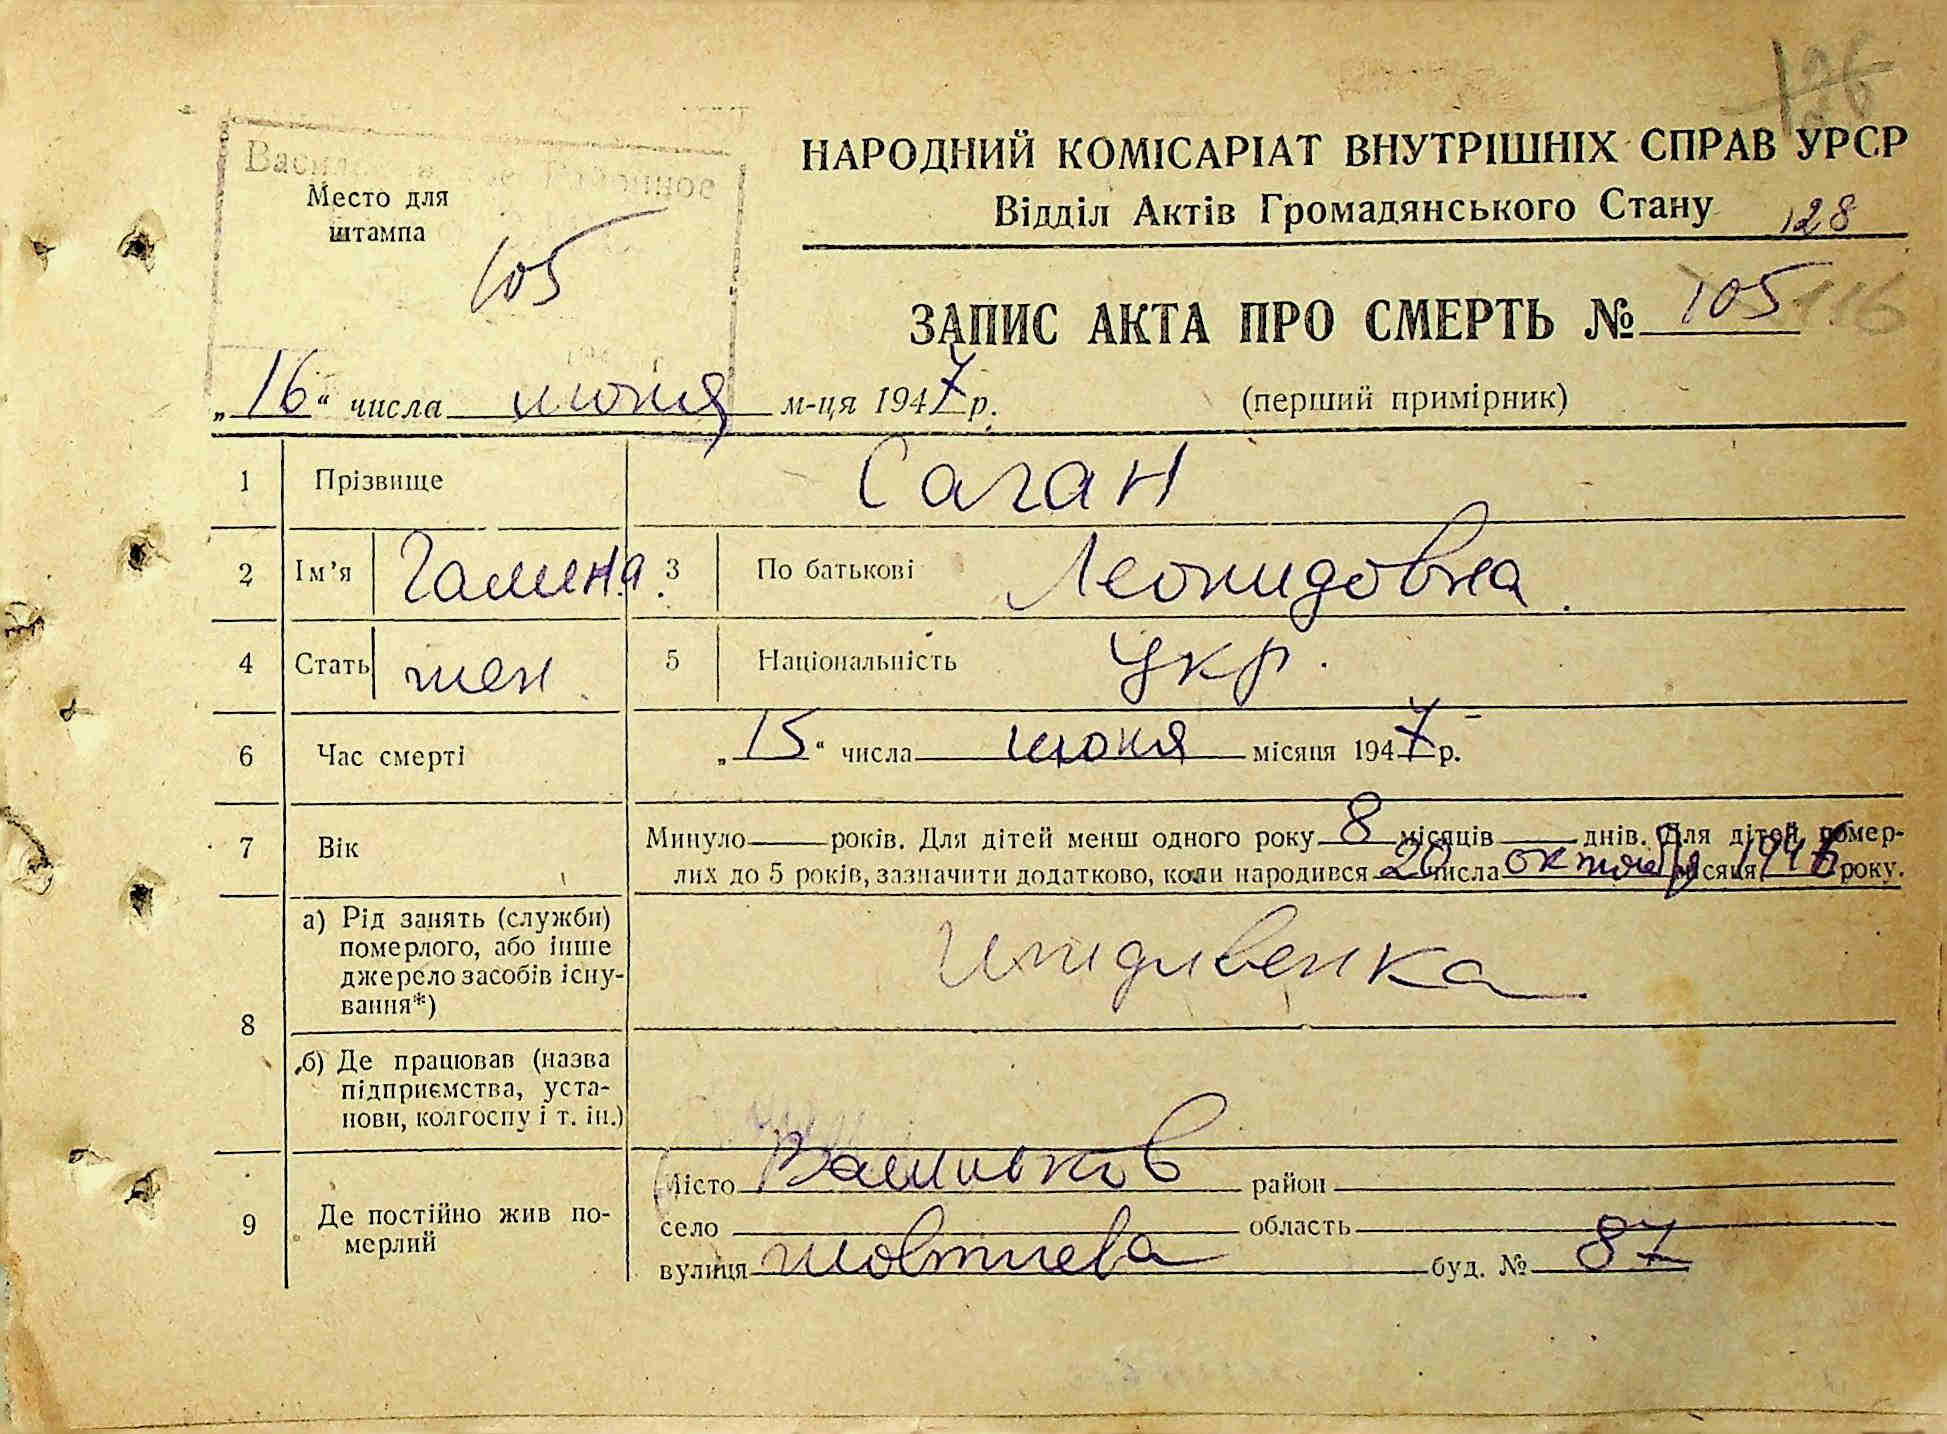 126
НАРОДНИЙ КОМІСАРІАТ ВНУТРІШНІХ СПРАВ УРСР
Відділ Актів Громадянського Стану
128
Районное
Место для
штампа
105
ЗАПИС АКТА ПРО СМЕРТЬ № 105 116
„16“ числа июня м-ця 1947 р.
(перший примірник)
1 Прізвище Саган
2 Ім'я Галина. 3 По батькові Леонидовна.
4 Стать жен. 5 Національність Укр.
6 Час смерті „15“ числа июня місяця 1947 р.
7 Вік Минуло років. Для дітей менш одного року 8 місяців днів. Для дітей, помер-
лих до 5 років, зазначити додатково, коли народився 20 числа октября місяця 1946 року.
8 а) Рід занять (служби)
померлого, або інше
джерело засобів існу-
вання*)
Иждивенка
б) Де працював (назва
підприємства, уста-
нови, колгоспу і т. ін.)
9 Де постійно жив по-
мерлий
Місто Васильков район
село область
вулиця буд. № 87